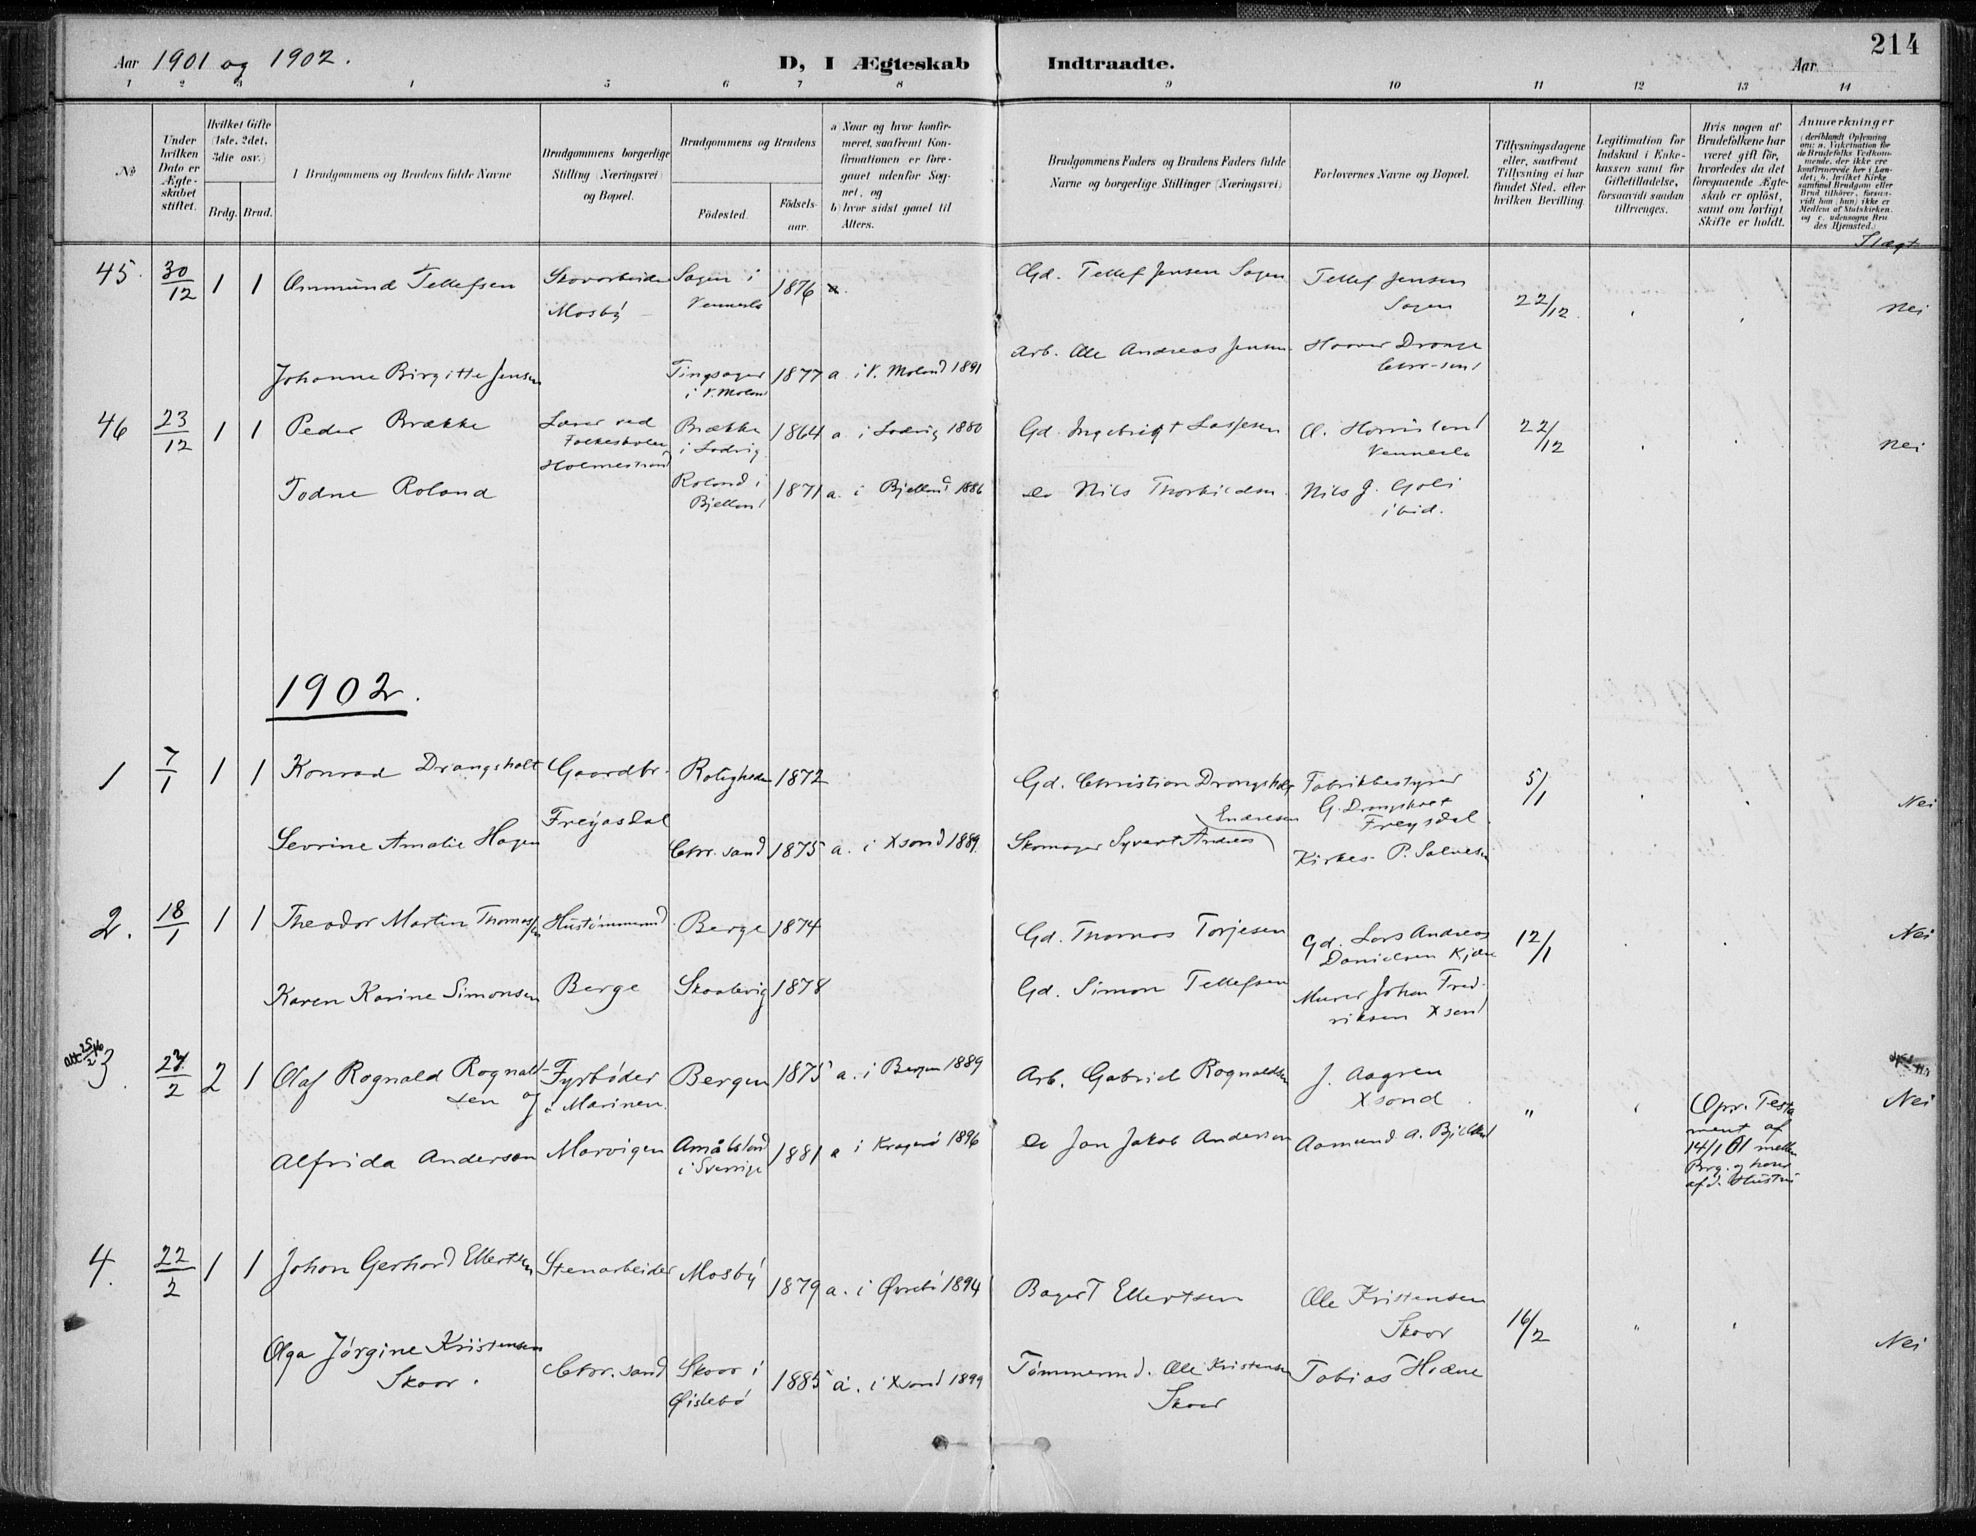 214
Aar 1901 og 1902.
D, I Ægteskab Indtraadte.
Aar
1 2 3 4 5 6 7 8 9 10 11 12 13 14
No
Under hvilken Dato er Ægteskabet stiftet.
Hvilket Gifte (1ste, 2det, 3die osv.)
Brdg. Brud.
Brudgommens og Brudens fulde Navne
Brudgommens borgerlige Stilling (Næringsvei) og Bopæl.
Brudgommens og Brudens
Födested. Födsels-aar.
a Naar og hvor konfirmeret, saafremt Konfirmationen er foregaaet udenfor Sognet, og
b) hvor sidst gaaet til Alters.
Brudgommens Faders og Brudens Faders fulde Navne og borgerlige Stillinger (Næringsvei)
Forlovernes Navne og Bopæl.
Tillysningsdagene eller, saafremt Tillysning ei har fundet Sted, efter hvilken Bevilling.
Legitimation for Indskud i Enkekassen samt for Giftetilladelse, forsaavidt saadan tiltrænges.
Hvis nogen af Brudefolkene har været gift før, hvorledes da det foregaaende Ægteskab er opløst, samt om lovligt Skifte er holdt.
Anmærkninger
Slægt
45. 30/12 1 1 Ommund Tellefsen Skovarbeider Sagen i Vennesla 1876 Gd. Tellef Jensen Sagen Tellef Jensen Sagen 22/12 Nei
Mosby
Johanne Birgitte Jensen Tingsager i V. Moland 1877 a. i V. Moland 1891 Arb. Ole Andreas Jensen Haaver Drange Chr-sand
46 23/12 1 1 Peder Brække Lærer ved Folkeskolen Holmestrand Brække i Lodvig 1864 a. i Lodvig 1880 Gd. Ingebrigt Lassesen O. Homisland Vennesla 22/12 Nei
Todne Roland Roland i Bjelland 1871 a. i Bjelland 1886 do Nils Thorkildsen Nils J. Goli ibid.
1902.
1 7/1 1 1 Konrad Drangsholt Gaardbr. Roligheden 1872 Gd. Christian Drangsholt Fabrikbestyrer G. Drangsholt Freysdal 5/1 Nei
Sevrine Amalie Hagen Freyasdal Chr. sand 1875 a. i Xsand 1889. Skomager Syvert Andreas Endresen Kirkes. P. Salvesen
2. 18/1 1 1 Theodor Martin Thomassen Hustømmermd. Berge 1874 Gd. Thomas Torjesen Gd. Lars Andreas Danielsen Kjær 12/1 Nei
Karen Karine Simonsen Berge Skaalevig 1878 Gd. Simon Tellefsen Murer Johan Fredriksen Xsand
3. 2/2 2 1 Olaf Rognald Rognaldsen og Fyrbøder i Marinen. Bergen 1875 a. i Bergen 1889 Arb. Gabriel Rognaldsen J. Aagren Xsand " Nei
Opr. Testament af 14/1 01 mellem Brg. og hans afd. Hustru
Alfrida Anderson Marvigen Amålsland i Sverrige 1881 a i Kragerø 1896 do Jan Jakob Anderson Aamund A. Bjelland
4. 22/2 1 1 Johan Gerhard Ellertsen Stenarbeider Mosby 1879 a. i Øvrebø 1894 Bager T Ellertsen Ole Kristensen Skaar 16/2 " Nei
Olga Jørgine Kristensen Skaar. Chr. sand Skaar i Øislebø 1885 a. i Xsand 1899 Tømmermd. Ole Kristensen Skaar Tobias Hodne